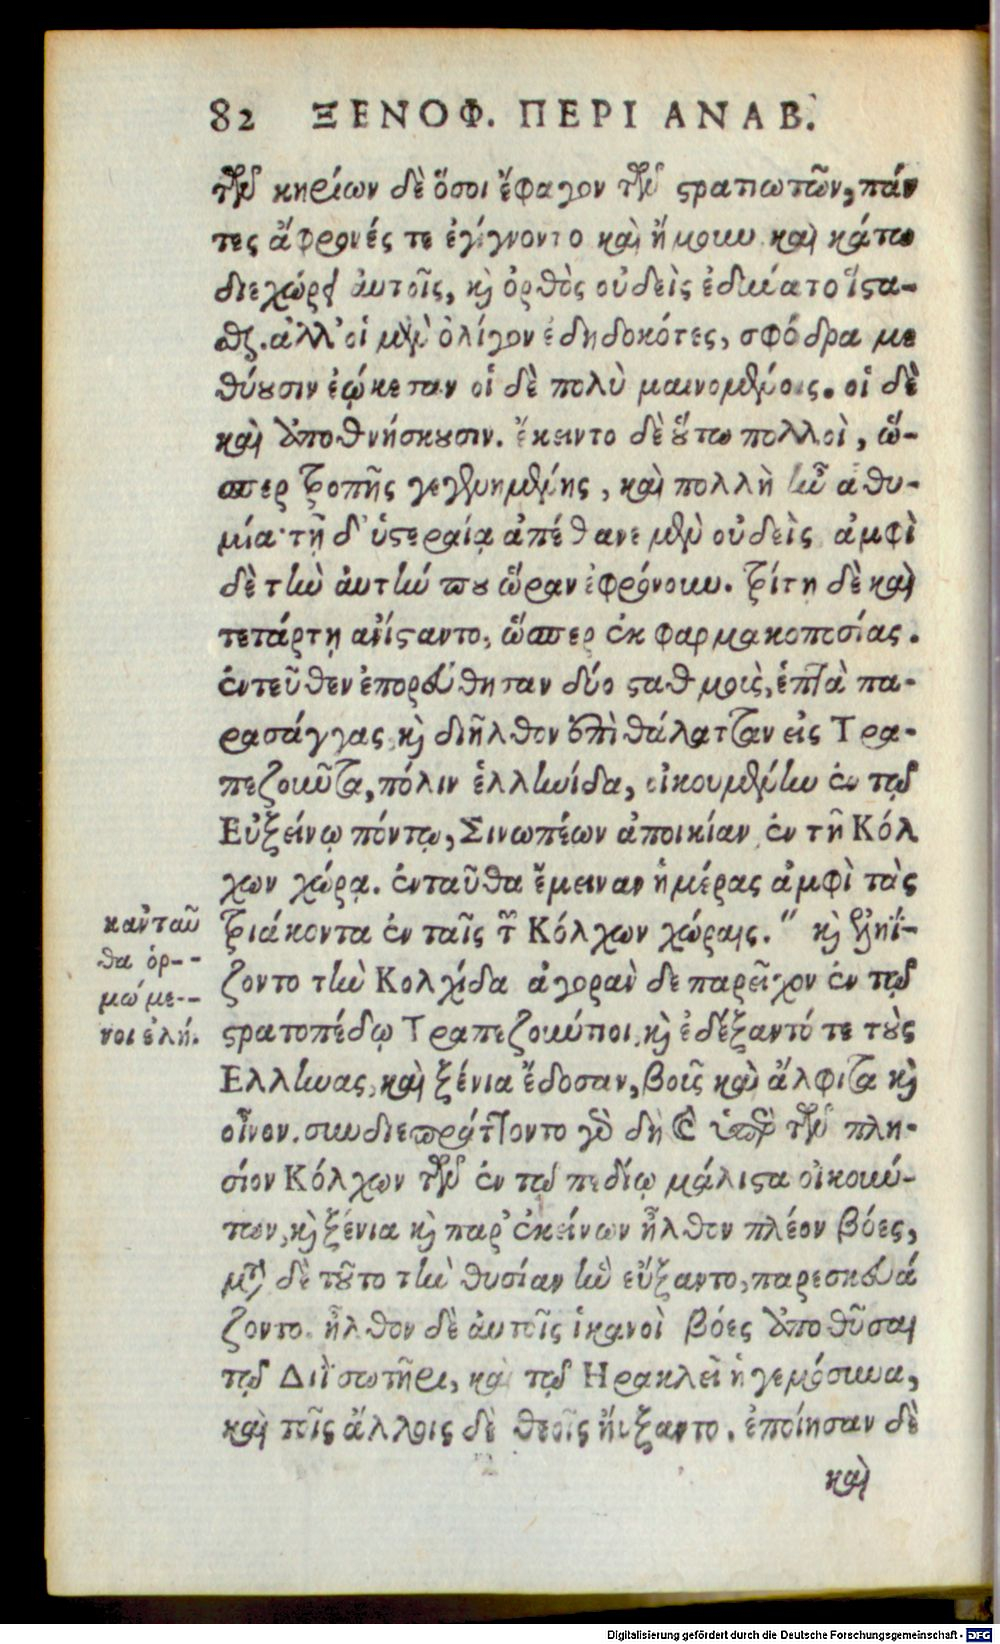 82 ΞΕΝΟΦ. ΠΕΡΙ ΑΝΑΒ.
τῶν κηρίων δὲ ὅσοι ἔφαγον τῶν στρατιωτῶν, πάν
τες ἄφρονές τε ἐγίγνοντο καὶ ἤμουν καὶ κάτω
διεχώρει ἀυτοῖς, καὶ ὀρθὸς οὐδεὶς ἐδύνατο ἵστα-
σθαι. ἀλλ' οἱ μὲν ὀλίγον ἐδηδοκότες, σφόδρα με
θύουσιν ἐῴκεσαν οἱ δὲ πολὺ μαινομένοις. οἱ δὲ
καὶ ἀποθνήσκουσιν. ἔκειντο δὲ οὕτω πολλοὶ, ὥ-
σπερ τροπῆς γεγενημένης, καὶ πολλὴ ἦν ἀθυ-
μία· τῇ δ' ὑστεραίᾳ ἀπέθανε μὲν οὐδεὶς ἀμφὶ
δὲ τὴν ἀυτήν που ὥραν ἐφρόνουν. τρίτη δὲ καὶ
τετάρτῃ ἀνίσταντο, ὥσπερ ἐκ φαρμακοποσίας.
ἐντεῦθεν ἐπορεύθησαν δύο σταθμοὺς, ἑπτὰ πα-
ρασάγγας, καὶ διῆλθον ἐπὶ θάλατταν εἰς Τρα-
πεζοῦντα, πόλιν ἑλληνίδα, οἰκουμένην ἐν τῷ
Εὐξείνῳ πόντῳ, Σινωπέων ἀποικίαν ἐν τῇ Κόλ
χων χώρᾳ. ἐνταῦθα ἔμειναν ἡμέρας ἀμφὶ τὰς
τριάκοντα ἐν ταῖς τῶν Κόλχων χώραις. " καὶ ἐληΐ-
ζοντο τὴν Κολχίδα ἀγορὰν δὲ παρεῖχον ἐν τῷ
στρατοπέδῳ Τραπεζούντιοι, καὶ ἐδέξαντό τε τοὺς
Ελληνας, καὶ ξένια ἔδοσαν, βοῦς καὶ ἄλφιτα καὶ
οἶνον. συνδιεπράττοντο γὰρ δὴ καὶ ὑπὲρ τῶν πλη-
σίον Κόλχων τῶν ἐν τῷ πεδίῳ μάλιστα οἰκούν-
των, καὶ ξένια καὶ παρ' ἐκείνων ἦλθον πλέον βόες,
μετὰ δὲ τοῦτο τὴν θυσίαν ἣν εὔξαντο, παρεσκευά
ζοντο. ἦλθον δὲ ἀυτοῖς ἱκανοὶ βόες ἀποθῦσαι
τῷ Διῒ σωτῆρι, καὶ τῷ Ηρακλεῖ ἡγεμόσυνα,
καὶ τοῖς ἄλλοις δὲ θεοῖς ηὔξαντο. ἐποίησαν δὲ
καὶ
καντᾶυ
θα ὁρ--
μώμε--
νοι ἐλή.
Digitalisierung gefördert durch die Deutsche Forschungsgemeinschaft - DFG